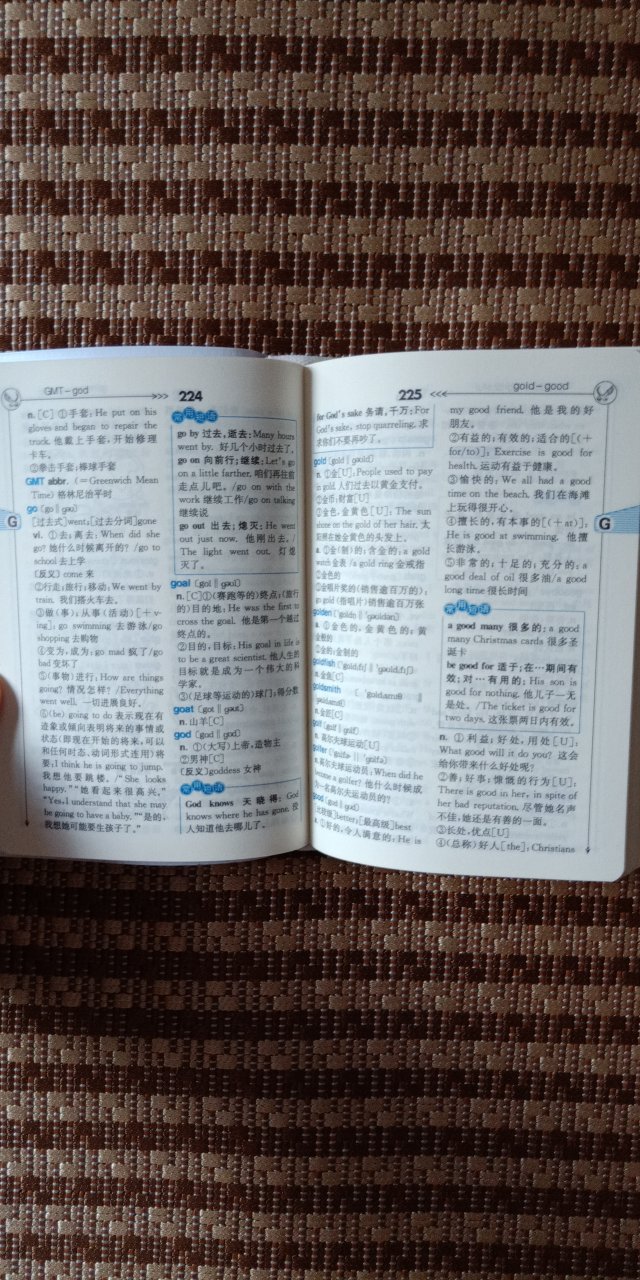 GMT-god
224
n. [C] ①手套: He put on his
gloves and began to repair the
truck. 他戴上手套,开始修理
卡车。
②拳击手套;棒球手套
GMT abbr. (=Greenwich Mean
Time) 格林尼治平时
go [ɡo ‖ ɡəʊ]
[过去式]went;[过去分词]gone
vi. ①去;离去: When did she
go? 她什么时候离开的? /go to
school 去上学
[反义] come 来
②行走;旅行;移动: We went by
train. 我们搭火车去。
③做(事);从事(活动)[+v-
ing]: go swimming 去游泳/go
shopping 去购物
④变为,成为: go mad 疯了/go
bad 变坏了
⑤(事物)进行: How are things
going? 情况怎样? /Everything
went well. 一切进展良好。
⑥(be) going to do 表示现在有
迹象或倾向表明将来的事情或
状态(即现在开始的将来,可以
和任何时态、动词形式连用)将
要: I think he is going to jump.
我想他要跳楼。/“She looks
happy.”“她看起来很高兴。”
“Yes, I understand that she may
be going to have a baby.”“是的,
我想她可能要生孩子了。”
常用短语
go by 过去,逝去: Many hours
went by. 好几个小时过去了。
go on 向前行;继续: Let's go
on a little farther. 咱们再往前
走点儿吧。/go on with the
work 继续工作/go on talking
继续说
go out 出去;熄灭: He went
out just now. 他刚出去。/
The light went out. 灯熄
灭了。
goal [ɡol ‖ ɡəʊl]
n. [C]①(赛跑等的)终点;(旅行
的)目的地: He was the first to
cross the goal. 他是第一个越过
终点的。
②目的,目标: His goal in life is
to be a great scientist. 他人生的
目标就是成为一个伟大的科
学家。
③(足球等运动的)球门;得分数
goat [ɡot ‖ ɡəʊt]
n. 山羊[C]
god [ɡɑd ‖ ɡɒd]
n. ①(大写)上帝,造物主
②男神[C]
[反义]goddess 女神
常用短语
God knows 天晓得: God
knows where he has gone. 没
人知道他去哪儿了。
G
225
gold-good
for God's sake 务请,千万: For
God's sake, stop quarreling. 求
求你们不要再吵了。
gold [ɡold ‖ ɡəʊld]
n. ①金[U]: People used to pay
in gold. 人们过去以黄金支付。
②金币;财富[U]
③金色,金黄色[U]: The sun
shone on the gold of her hair. 太
阳照在她金黄色的头发上。
a. ①金(制)的;含金的: a gold
watch 金表 /a gold ring 金戒指
②金色的
③金唱片奖的(销售逾百万的):
go gold (指唱片)销售逾百万张
golden [ˈɡoldn ‖ ˈɡəʊldən]
a. ①金色的,金黄色的;黄
金般的
②金的;金制的
goldfish
n. 金鱼[C]
goldsmith
n. 金匠[C]
golf
n. 高尔夫球运动[U]
golfer
n. 高尔夫球运动员: When did he
become a golfer? 他什么时候成
为一名高尔夫运动员的?
good [ɡʊd ‖ ɡʊd]
[比较级]better;[最高级]best
a. ①好的,令人满意的: He is
my good friend. 他是我的好
朋友。
②有益的;有效的;适合的[(+
for/to)]: Exercise is good for
health. 运动有益于健康。
③愉快的: We all had a good
time on the beach. 我们在海滩
上玩得很开心。
④擅长的,有本事的[(+at)]:
He is good at swimming. 他擅
长游泳。
⑤非常的;十足的;充分的: a
good deal of oil 很多油/a good
long time 很长时间
常用短语
a good many 很多的: a good
many Christmas cards 很多圣
诞卡
be good for 适于;在…期间有
效;对…有用的: His son is
good for nothing. 他儿子一无
是处。/The ticket is good for
two days. 这张票两日内有效。
n. ①利益;好处,用处[U]:
What good will it do you? 这会
给你带来什么好处呢?
②善;好事;慷慨的行为[U]:
There is good in her, in spite of
her bad reputation. 尽管她名声
不佳,她还是有善的一面。
③长处,优点[U]
④(总称)好人[the]: Christians
G